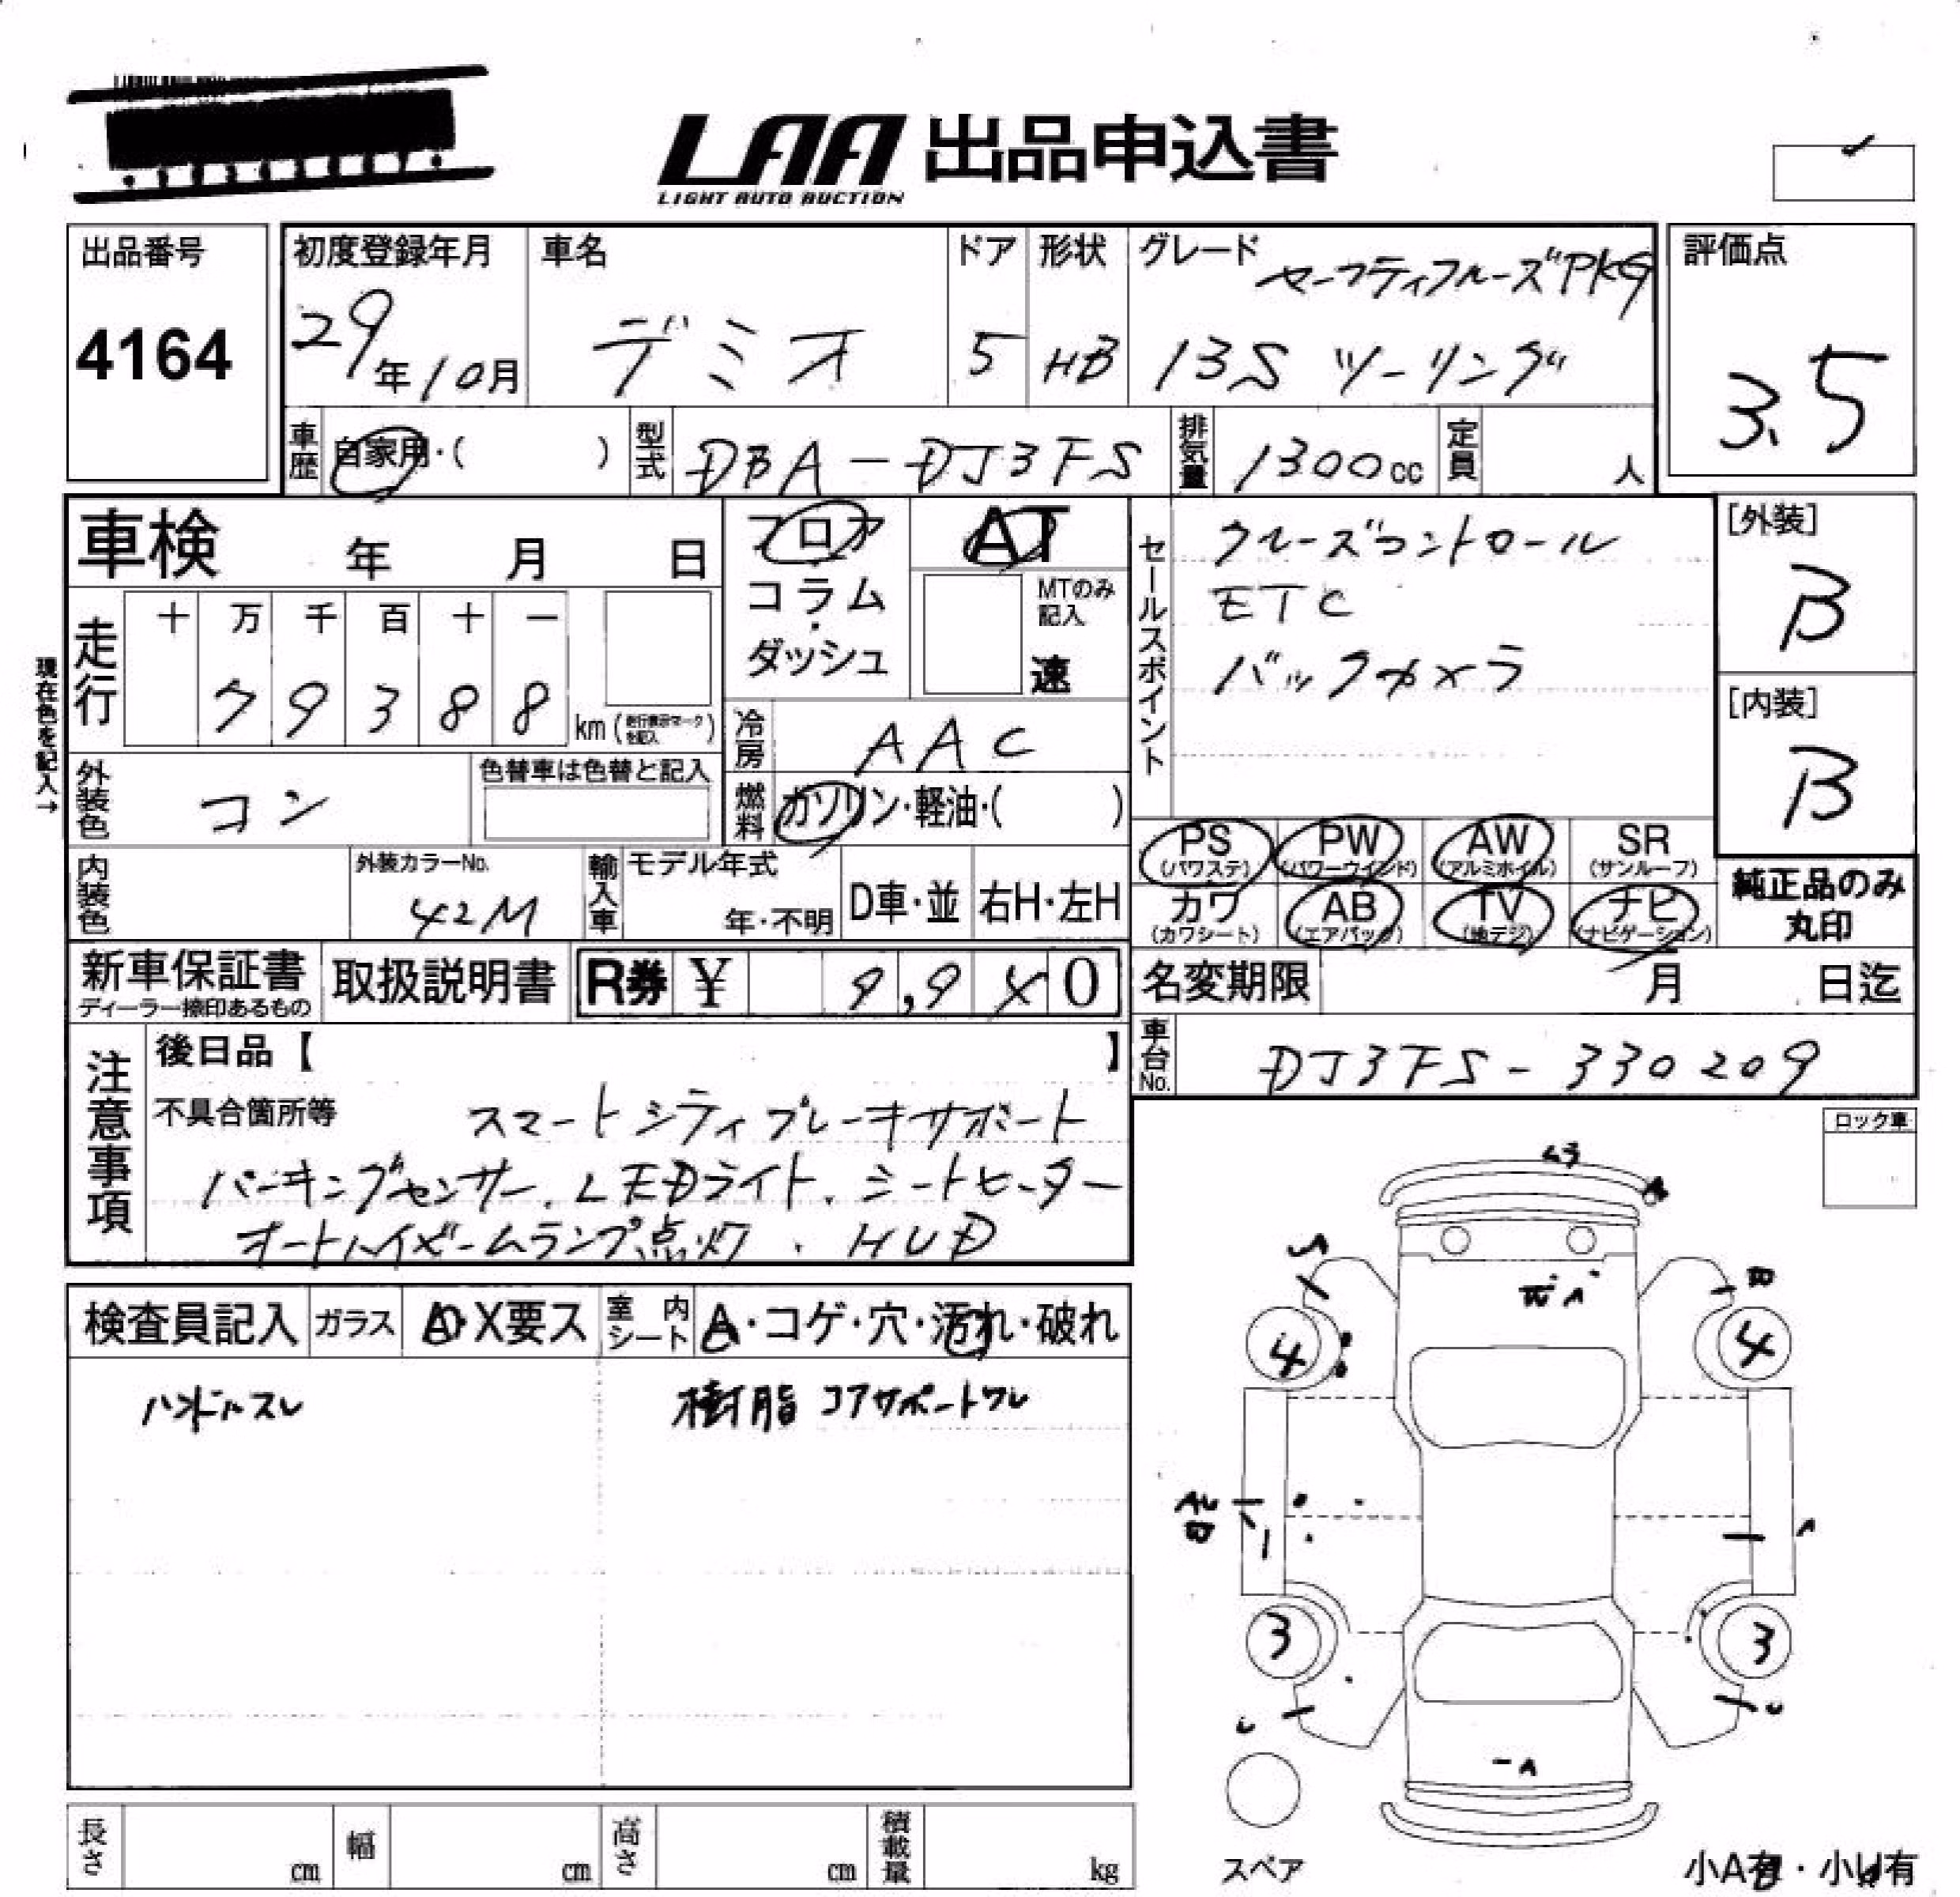 LAA 出品申込書
LIGHT AUTO AUCTION
出品番号
4164
初度登録年月
29年10月
車名
デミオ
ドア
5
形状
HB
グレード
セーフティクルーズPKG
13S ツーリング
評価点
3.5
車歴
自家用・( )
型式
DBA-DJ3FS
排気量
1300cc
定員
人
車検 年 月 日
フロア
コラム
ダッシュ
AT
MTのみ
記入
速
セールスポイント
クルーズコントロール
ETC
バックカメラ
[外装]
B
[内装]
B
現在色を記入→
走行
十 万 千 百 十 一
7 9 3 8 8 km (走行表示マークを記入)
冷房
AAC
外装色
コン
色替車は色替と記入
燃料
ガソリン・軽油・( )
PS
(パワステ)
PW
(パワーウインド)
AW
(アルミホイル)
SR
(サンルーフ)
カワ
(カワシート)
AB
(エアバック)
TV
(地デジ)
ナビ
(ナビゲーション)
純正品のみ
丸印
内装色
外装カラーNo.
42M
輸入車
モデル年式
年・不明
D車・並
右H・左H
新車保証書
ディーラー捺印あるもの
取扱説明書
R券 ¥ 9,9 X 0
名変期限 月 日迄
車台No.
DJ3FS-330209
注意事項
後日品【 】
不具合箇所等 スマートシティブレーキサポート
パーキングセンサー、LEDライト、シートヒーター
オートハイビームランプ点灯、HUD
ロック車
検査員記入
ガラス
A・X要ス
室内シート
A・コゲ・穴・汚れ・破れ
ハンドルスレ
樹脂コアサポートワレ
ムラ
4
4
3
3
スペア
長さ cm
幅 cm
高さ cm
積載量 kg
小A有・小U有